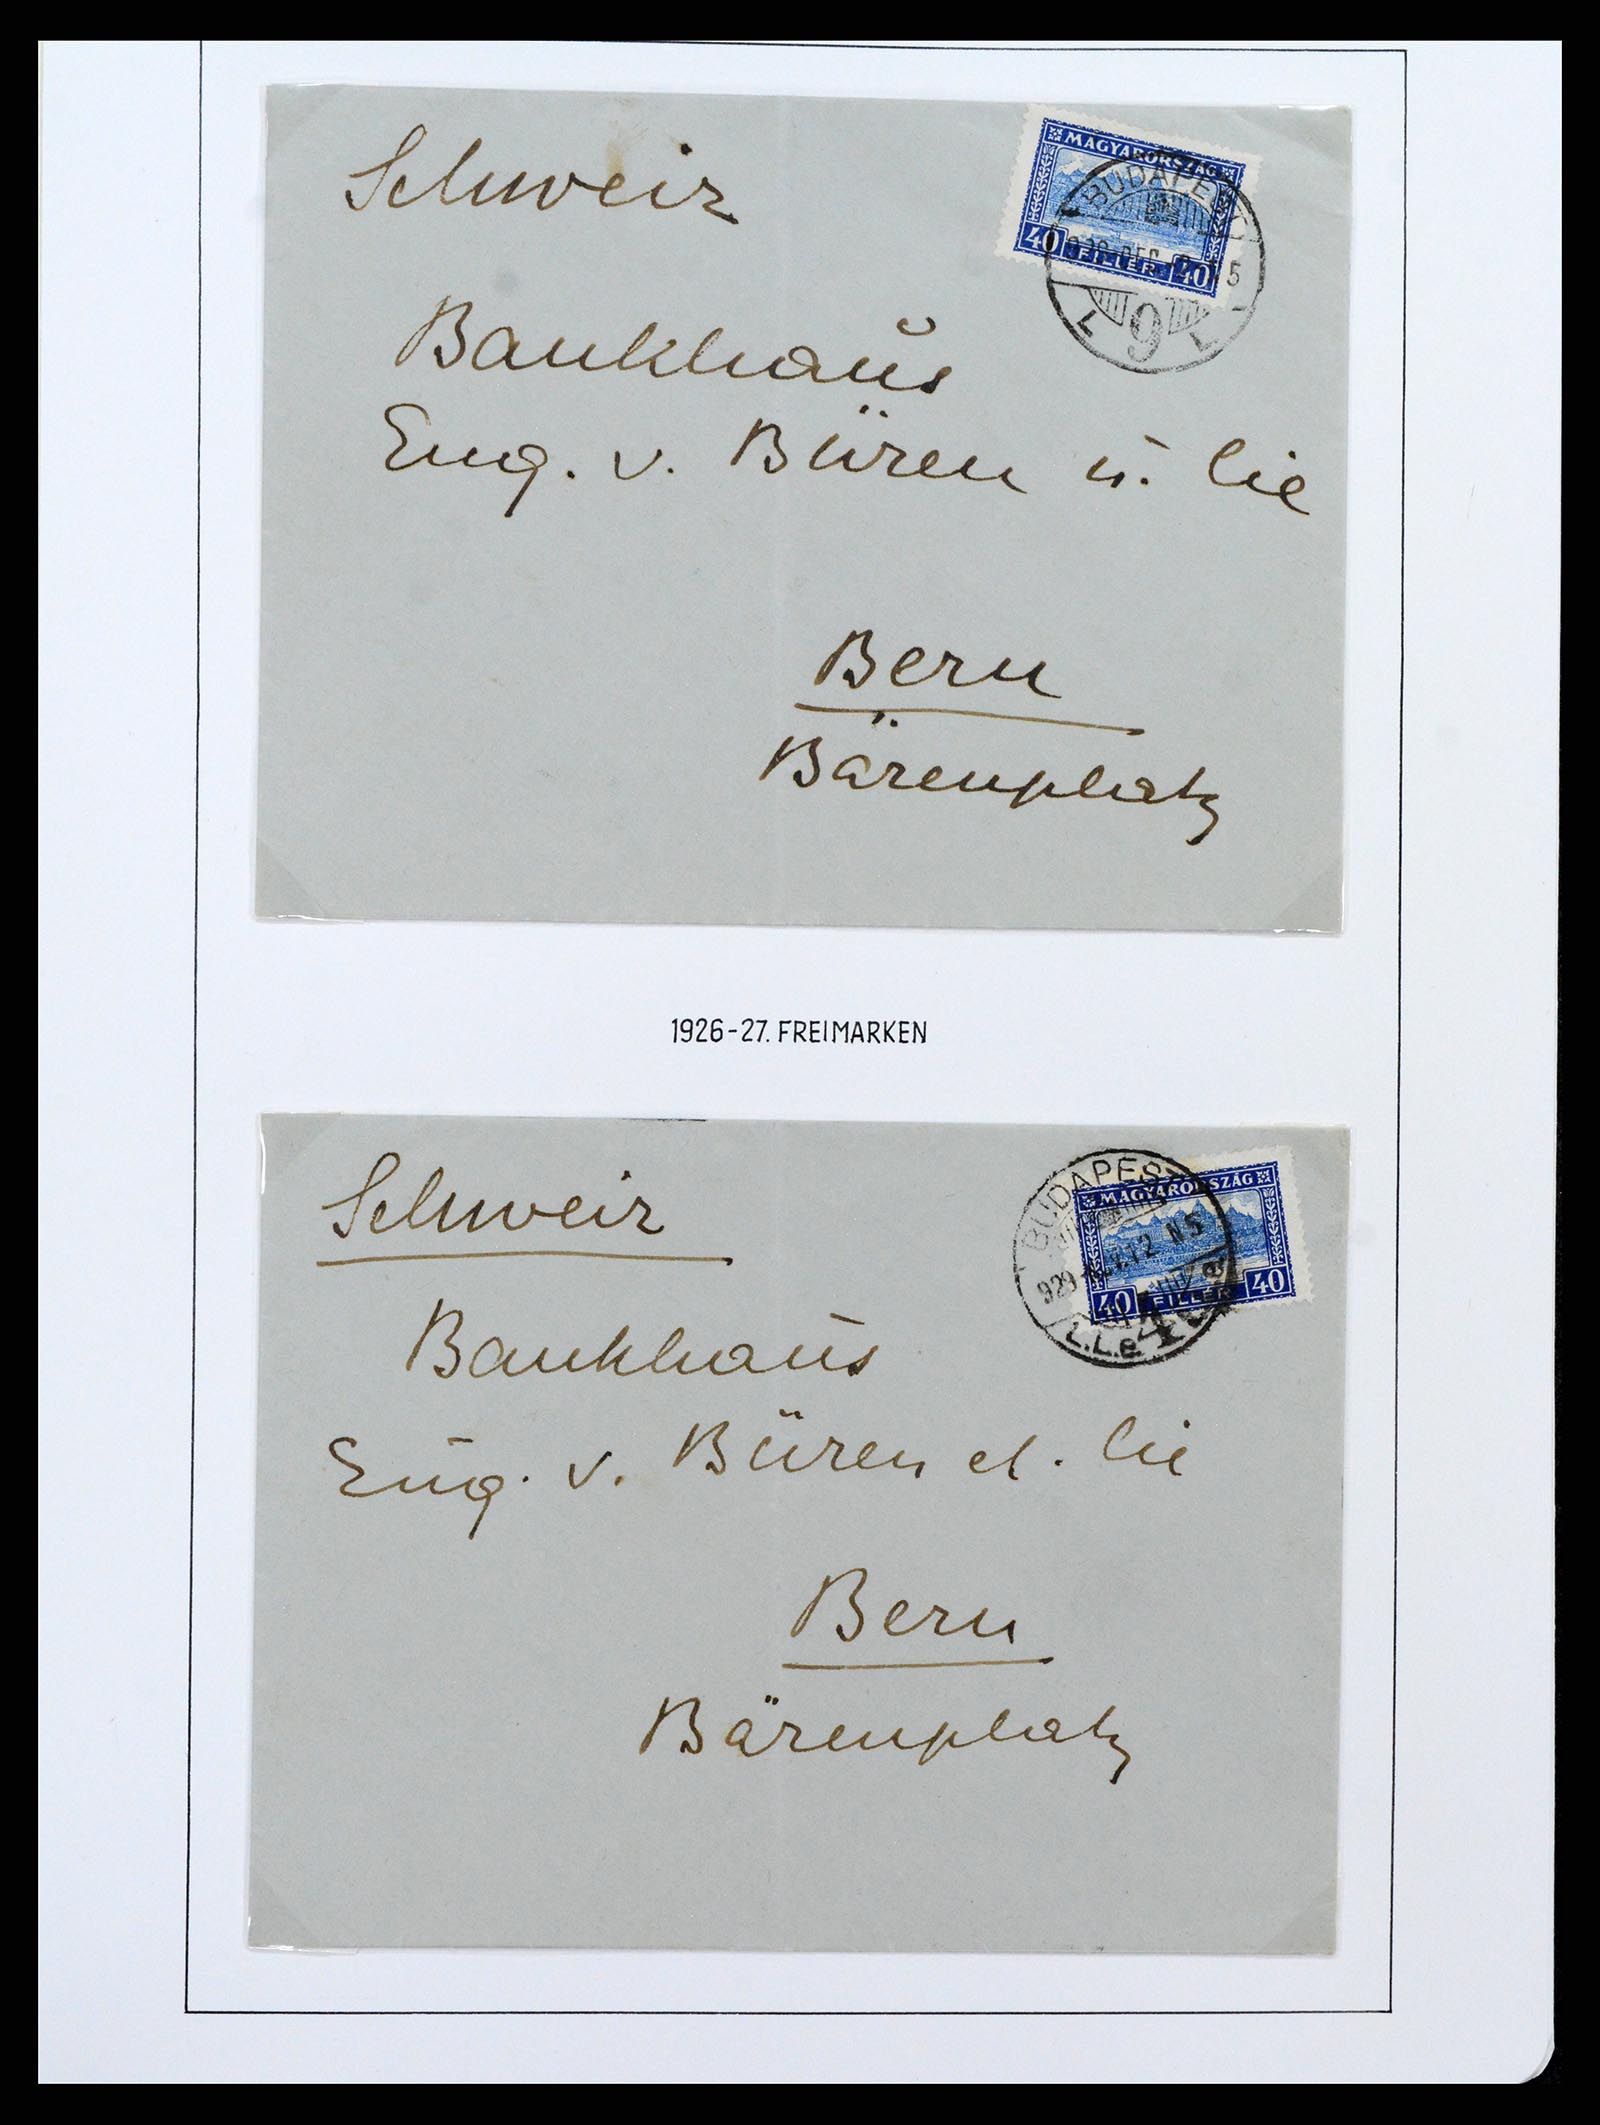 Schweiz
MAGYARORSZÁG
40 FILLÉR 40
BUDAPEST
9
L L
Bankhaus
Eug. v. Büren u. Cie
Bern
Bärenplatz
1926-27. FREIMARKEN
Schweiz
MAGYARORSZÁG
40 FILLÉR 40
BUDAPEST
929 12 N5
4
L.L.e.
Bankhaus
Eug. v. Büren et. Cie
Bern
Bärenplatz